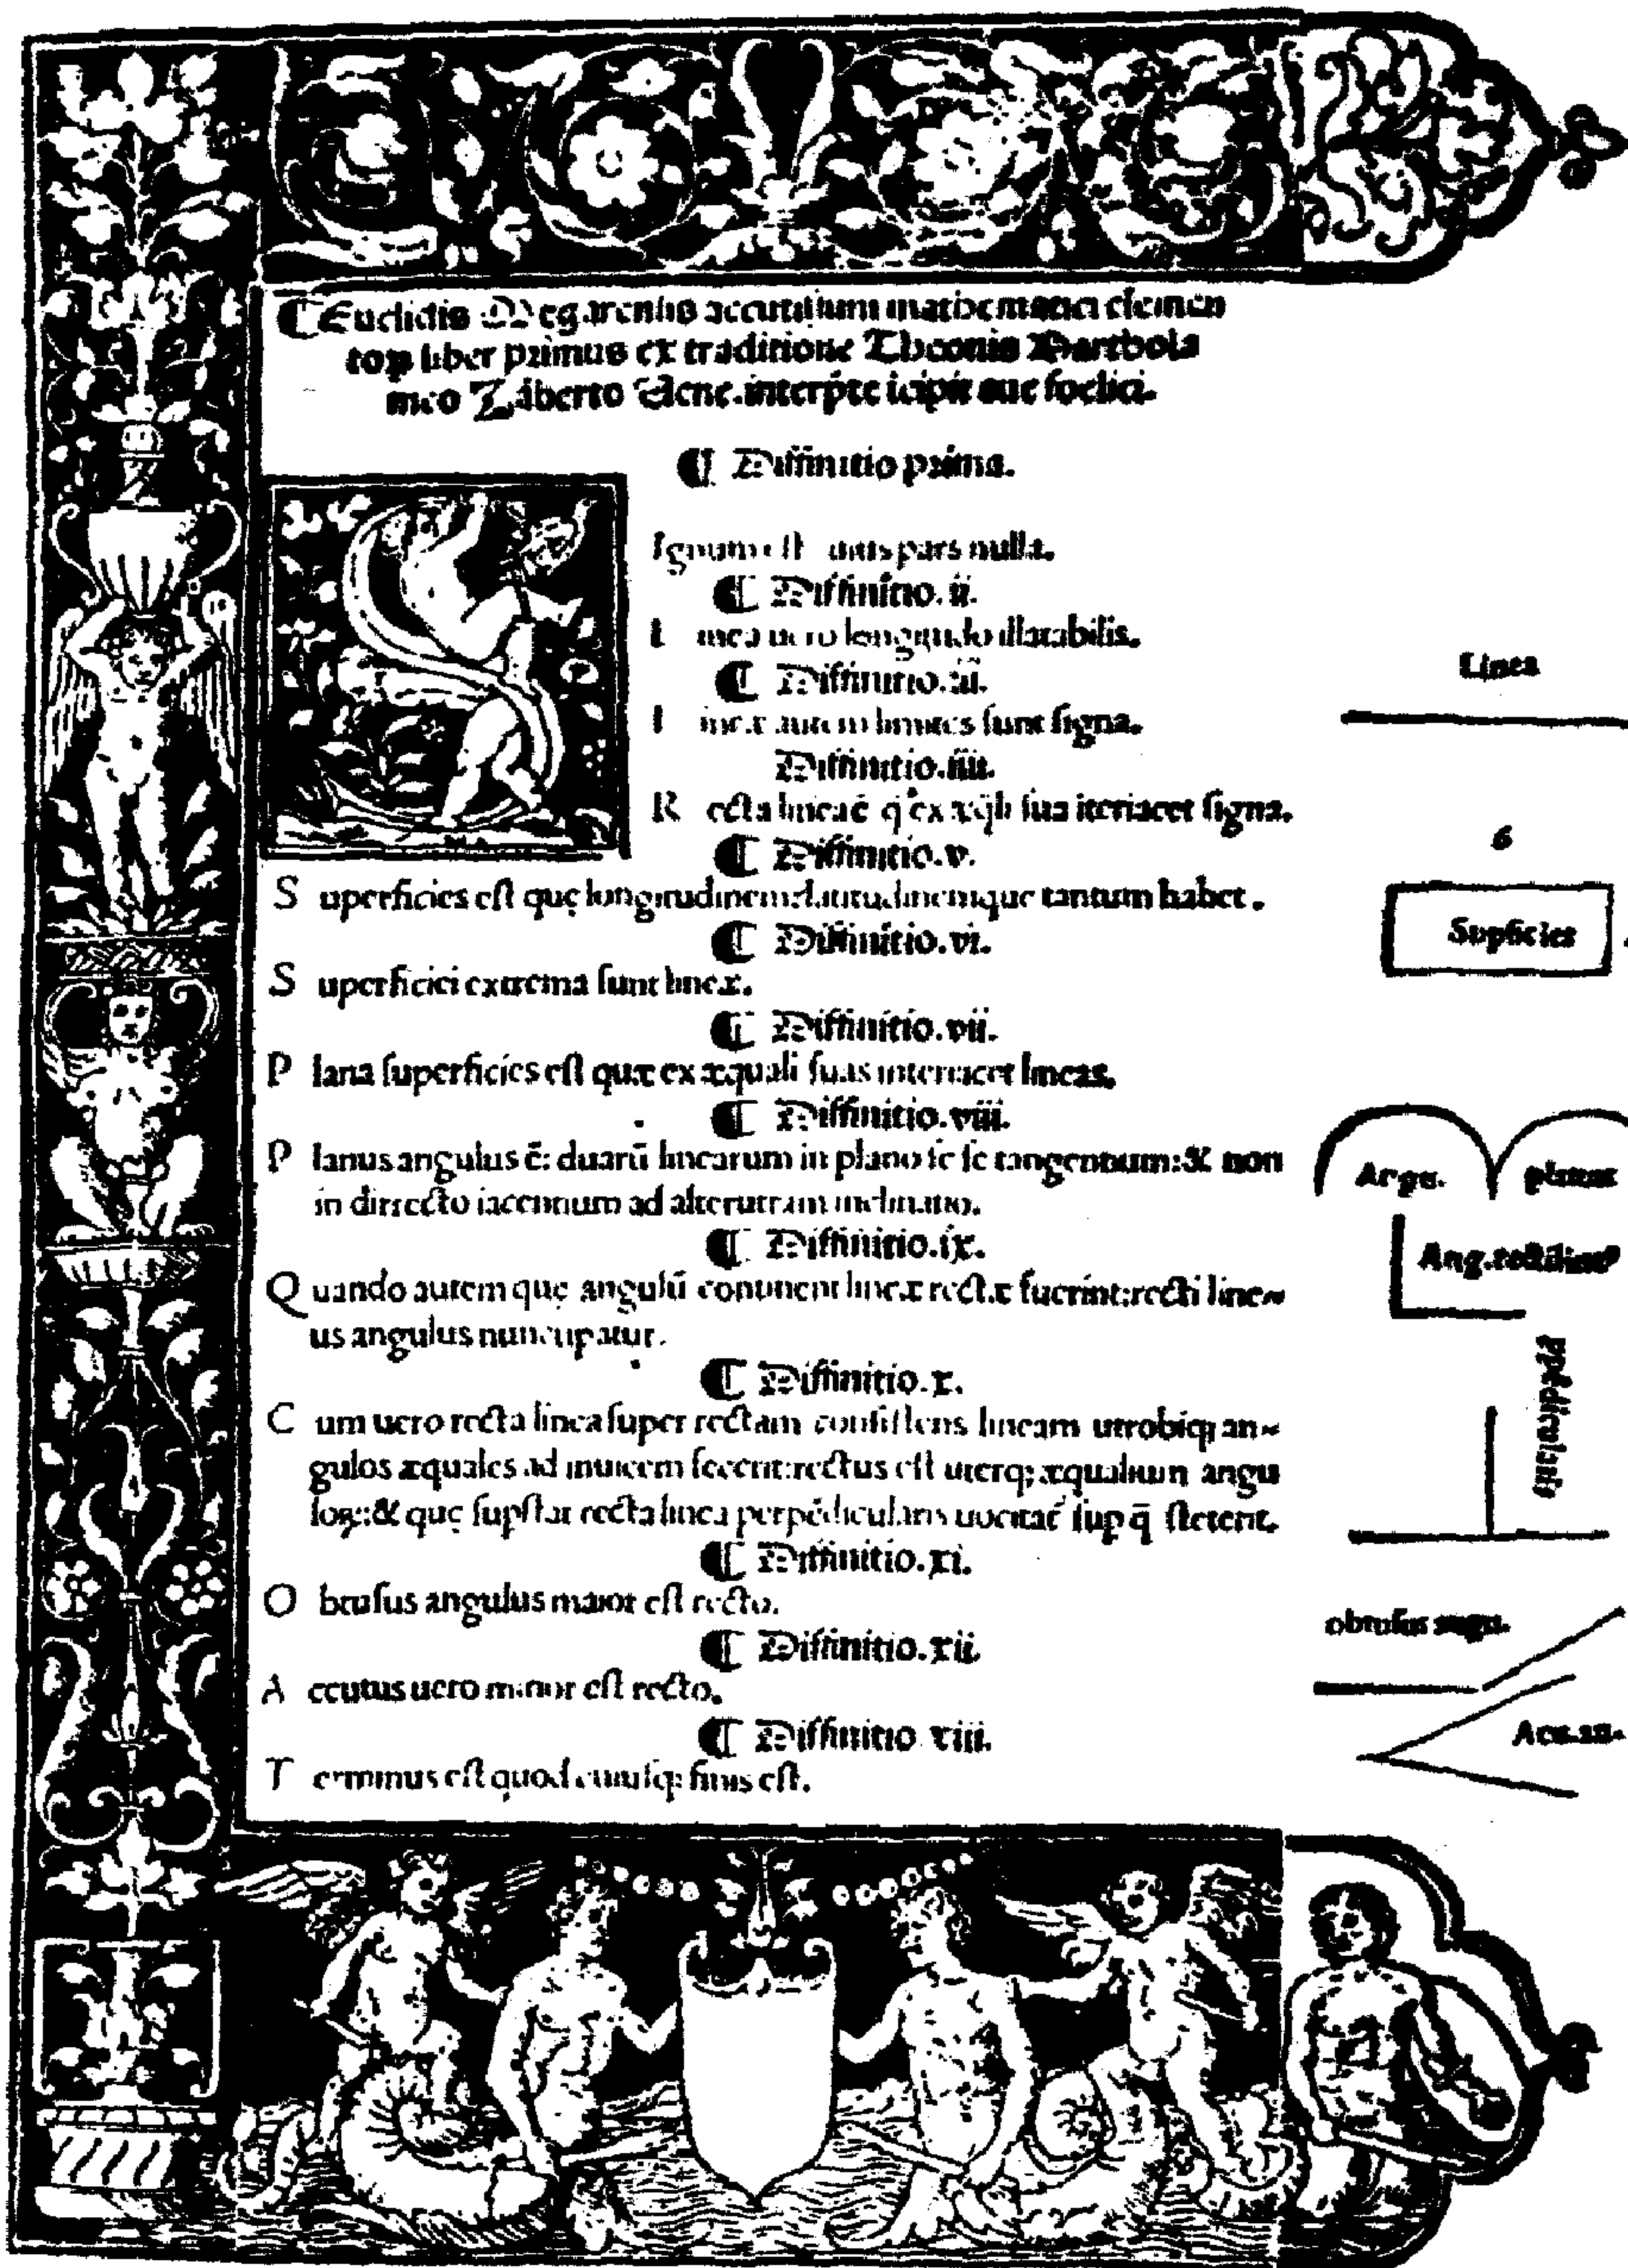 ¶Euclidis Megarensis accutissimi mathematici elemen
toꝝ liber primus ex traditione Theonis Bartbola
meo Zāberto Uene. interp̄te īcipit aue foelici.
¶ Diffinitio prima.
Ignum est cuius pars nulla.
¶ Diffinitio. ii.
L inea uero longitudo illatabilis.
¶ Diffinitio. iii.
L ineæ autem limites sunt signa.
Diffinitio. iiii.
R ecta linea ē q ex æq̄li sua iteriacet signa.
¶ Diffinitio. v.
S uperficies est quę longitudinem: latitudinemque tantum habet.
¶ Diffinitio. vi.
S uperficiei extrema sunt lineæ.
¶ Diffinitio. vii.
P lana superficies est quæ ex æquali suas interiacet lineas.
¶ Diffinitio. viii.
P lanus angulus ē: duarū linearum in plano se se tangentium: & non
in dirrecto iacentium ad alterutram inclinatio.
¶ Diffinitio. ix.
Q uando autem quę angulū continent lineæ rectæ fuerint: recti line~
us angulus nuncupatur.
¶ Diffinitio. x.
C um uero recta linea super rectam consistens lineam utrobiqꝫ an~
gulos æquales ad inuicem fecerit: rectus est uterqꝫ æqualium angu
loꝝ: & quę supstat recta linea perpēdicularis uocitat̄ sup q̄ steterit.
¶ Diffinitio. xi.
O btusus angulus maior est recto.
¶ Diffinitio. xii.
A ccutus uero minor est recto.
¶ Diffinitio xiii.
T erminus est quod cuiusqꝫ finis est.
Linea
Supficies
Angu. planus
Ang. rectiline⁹
ppēdicularis
obtusus angu.
Acu. an.